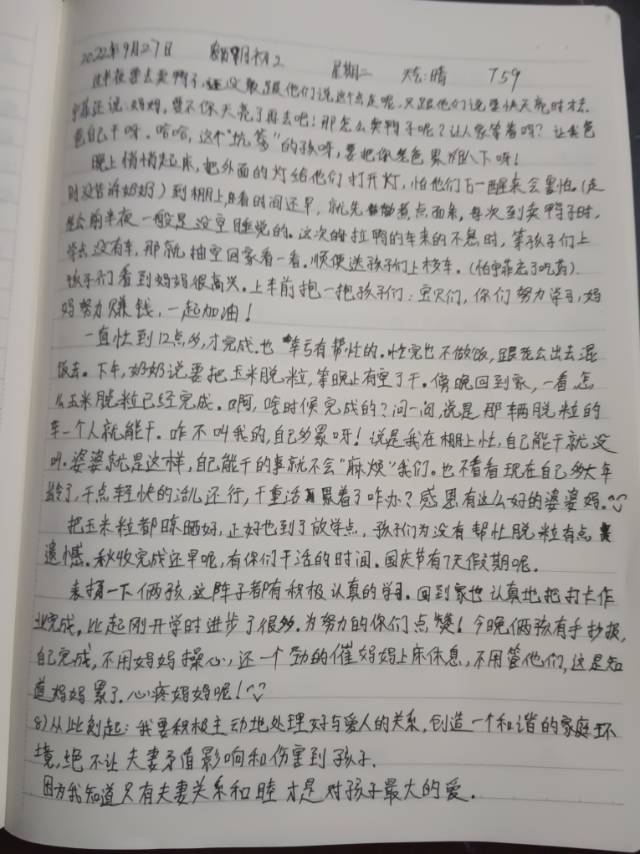 2022年9月27日 星期二 天气:晴 T59
这半夜要去卖鸭子,还没敢跟他们说这个点走呢,只跟他们说要快天亮时才去
还说:妈妈,要不你天亮了再去吧!那怎么卖鸭子呢?让人家等着吗?让爸爸
爸自己干呀。哈哈,这个“坑爹”的孩呀,要把你老爸累趴下呀!
晚上悄悄起床,把外面的灯给他们打开灯,怕他们万一醒来会害怕。(走
时没告诉奶奶)到棚上,看时间还早,就先煮点面条,每次到卖鸭子时,
前半夜一般是没空睡觉的。这次的拉鸭的车来的不急时,等孩子们上
学去没有车,那就抽空回家看一看。顺便送孩子们上校车。
孩子们看到妈妈很高兴。上车前抱一抱孩子们:宝贝们,你们努力学习,妈
妈努力赚钱,一起加油!
一直忙到12点多,才完成。也幸亏有帮忙的。忙完也不做饭,跟老公出去混
饭去。下午,奶奶说要把玉米脱粒,等晚上有空了干。傍晚回到家,一看怎
么玉米脱粒已经完成。啊,啥时候完成的?问一问,说是那辆脱粒的
车一个人就能干。咋不叫我的,自己多累呀!说是我在棚上忙,自己能干就没
叫。婆婆就是这样,自己能干的事就不会“麻烦”我们。也不看看现在自己多大年
龄了,干点轻快的活儿还行,干重活累着了咋办?感恩有这么好的婆婆妈。
把玉米粒都晾晒好,正好也到了放学点,孩子们为没有帮忙脱粒有点
遗憾。秋收完成还早呢,有你们干活的时间。国庆节有7天假期呢。
表扬一下俩孩,这阵子都有积极认真的学习。回到家也认真地把打卡作
业完成,比起刚开学时进步了很多。为努力的你们点赞!今晚俩孩有手抄报,
自己完成,不用妈妈操心,还一个劲的催妈妈上床休息,不用管他们,这是知
道妈妈累了。心疼妈妈呢!
8)从此刻起:我要积极主动地处理好与爱人的关系,创造一个和谐的家庭环
境,绝不让夫妻矛盾影响和伤害到孩子.
因为我知道只有夫妻关系和睦才是对孩子最大的爱.